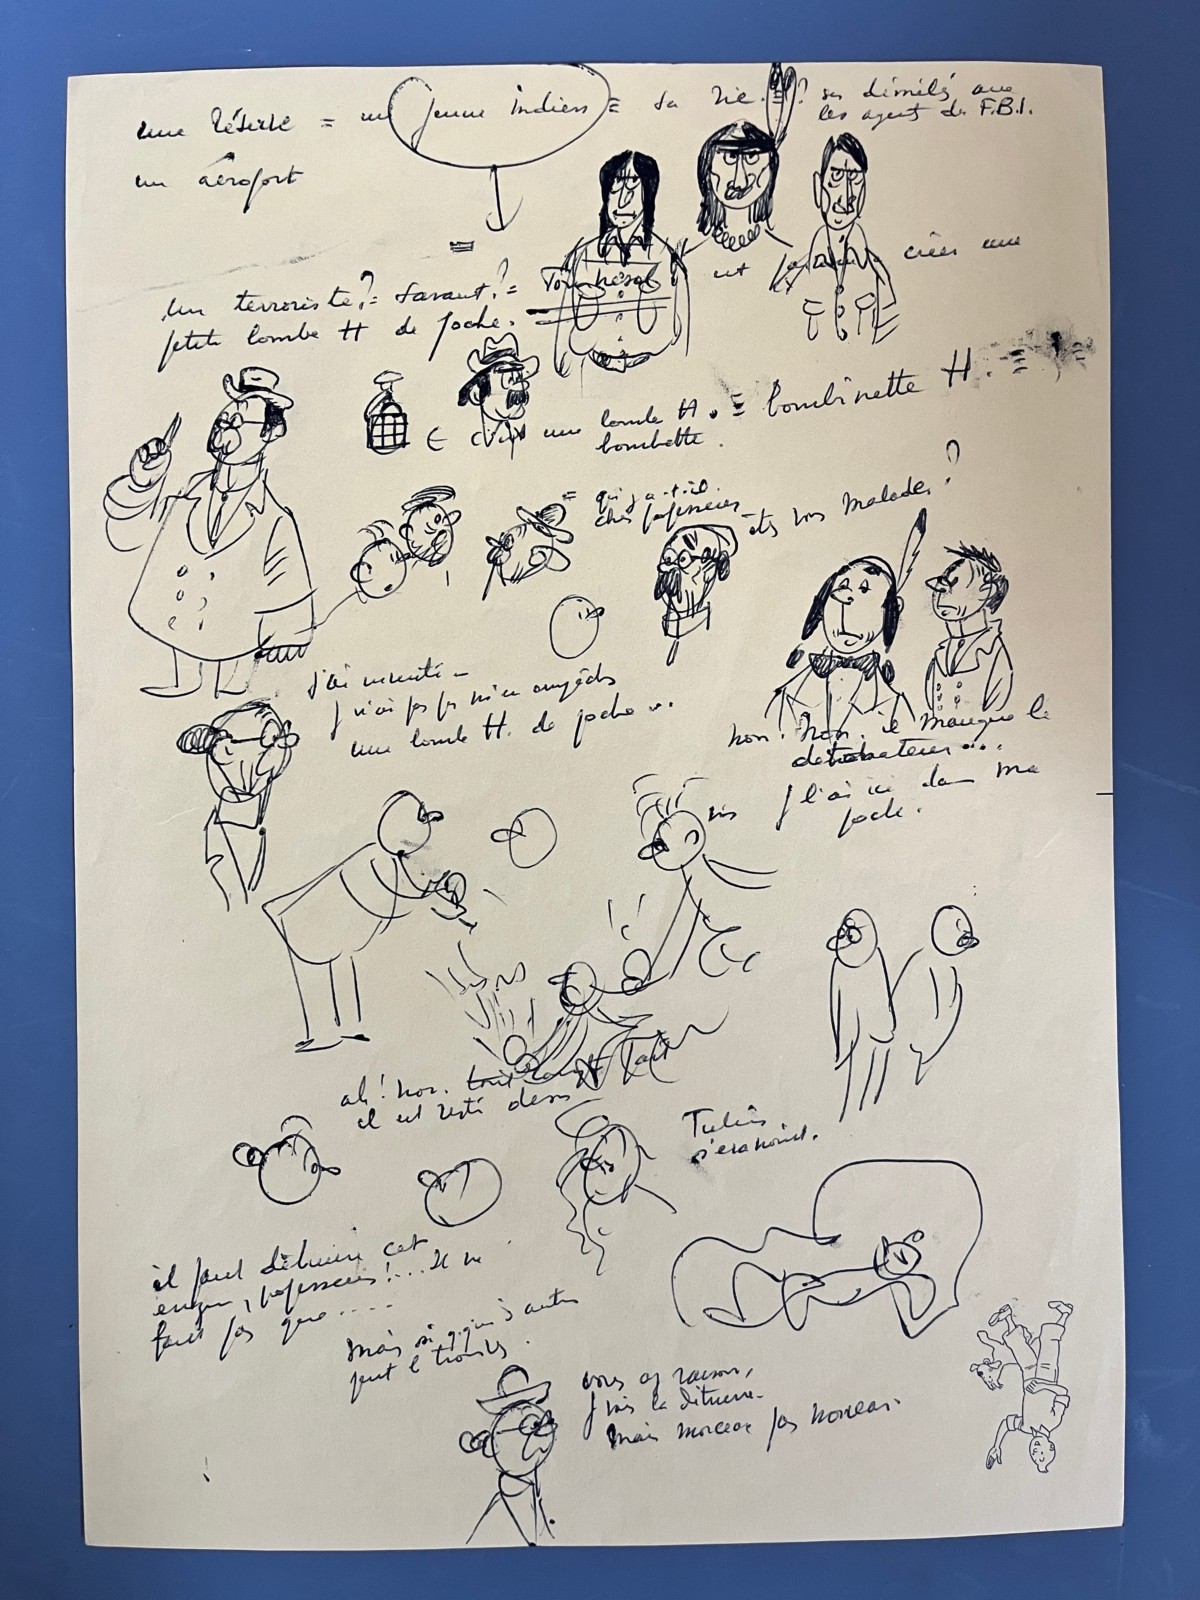 une réserve = un jeune indiens = sa vie. ? ses démêlés avec
les agent du F.B.I.
un aéroport
=
un terroriste? = savant? = Tournesol est parvenu créer une
petite bombe H de poche.
c'est une bombe H. = bombinette H. =
bombette.
= qu'y a-t-il
cher professeur êtes vous malade?
!
j'ai inventé
une bombe H. de poche
non. non. il manque le
détonateur...
je l'ai ici dans ma
poche.
ah! non. tout
il est resté dessus
Tintin
s'évanouit.
il faut détruire cet
engin, professeur!... Il ne
faut pas que .....
Mais si d'autres
peut le trouver.
vous raison,
je vais la détruire.
Mais morceau par morceau.